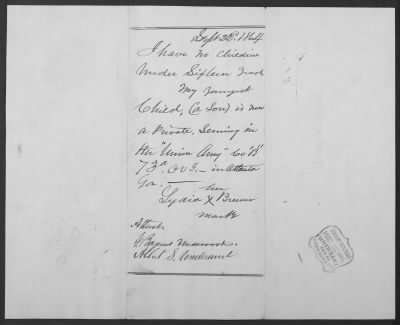 Sept 22d. 1864
I have no Children
Under Sixteen Years
My Youngest
Child, (a Son) is now
a Private, Serving in
the "Union Army" Co "H"
73d. O V I. — in Atlanta
Ga. —
her
Lydia X Brewer
mark
Attest.
Underwood.
Albert S. Underwood